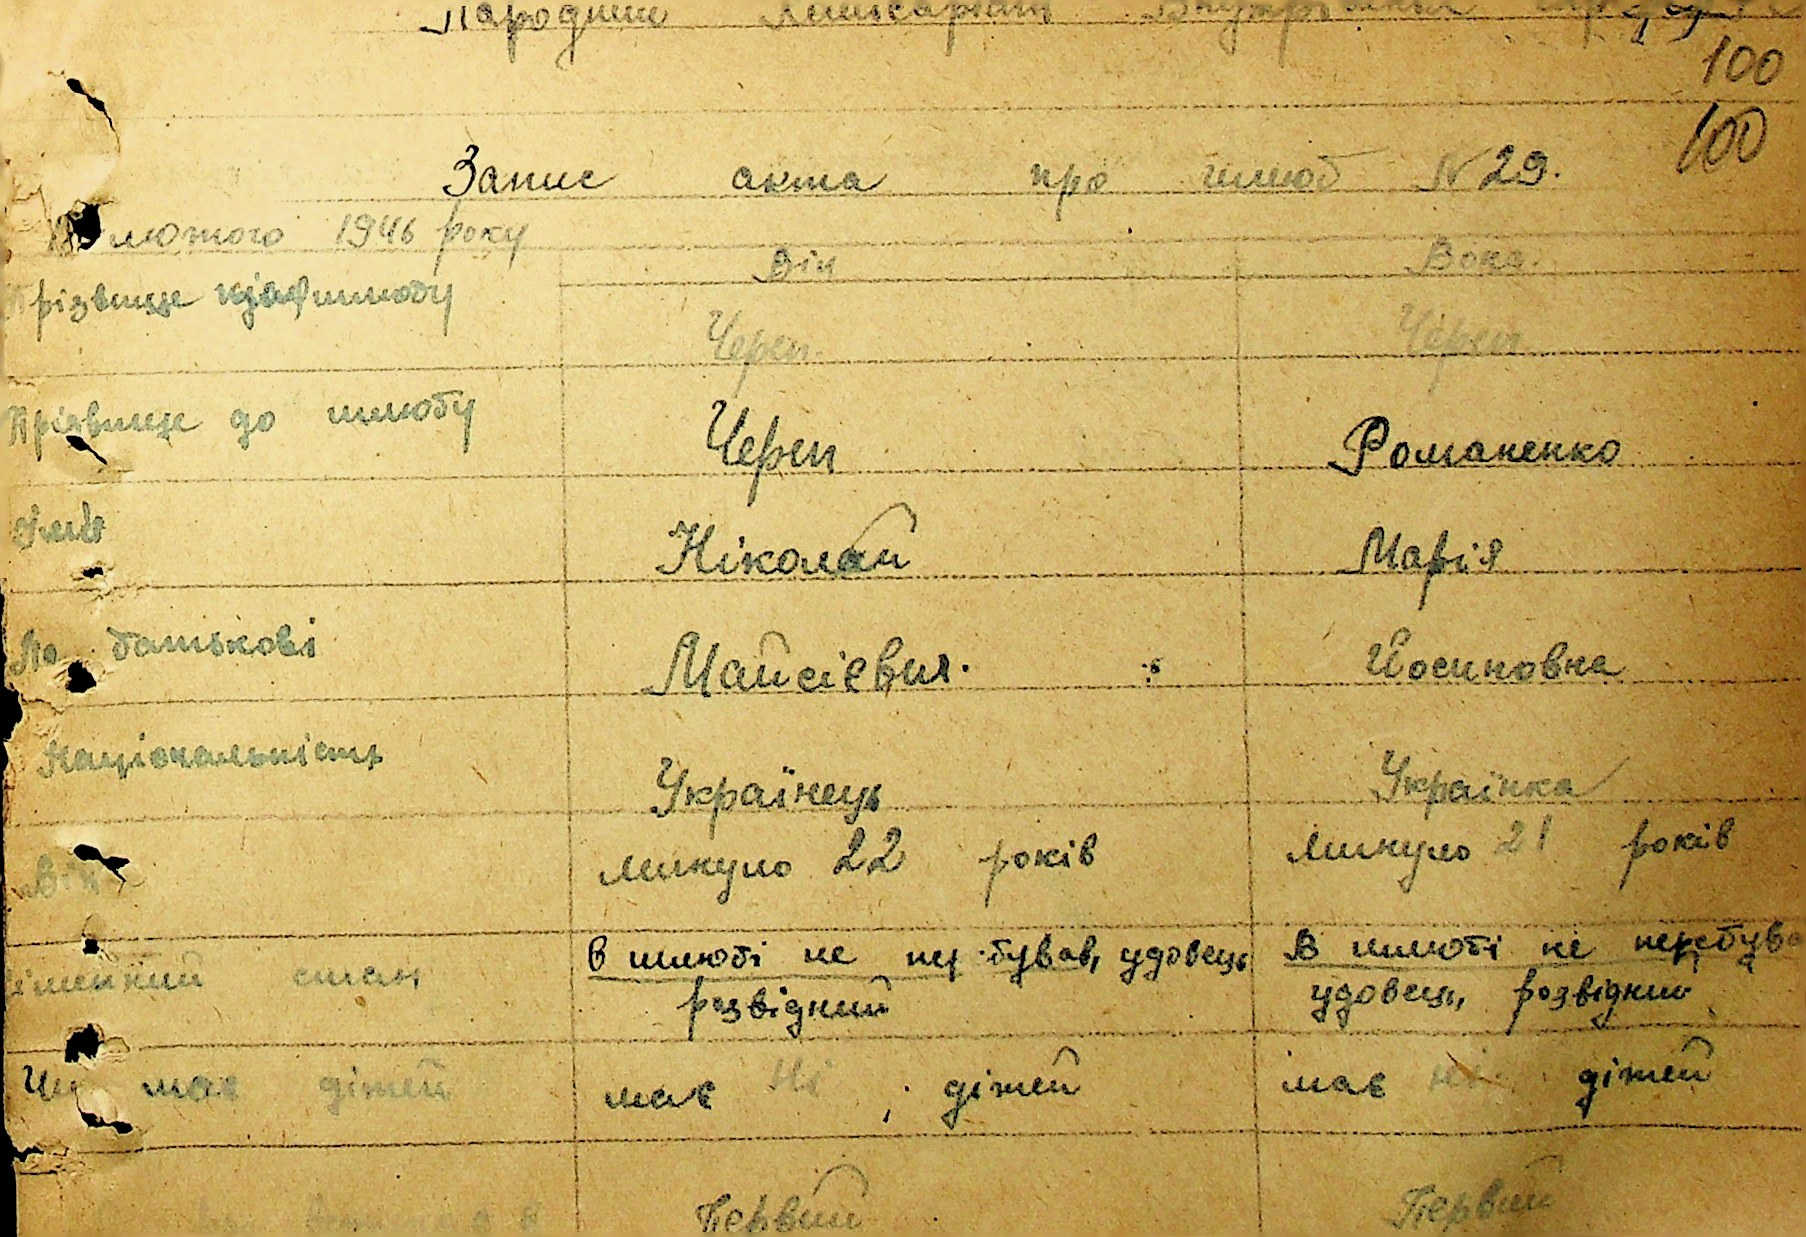 Народний Комісаріят Внутрішніх
100
100
Запис акта про шлюб № 29.
лютого 1946 року
Він Вона.
Прізвище шлюбу
Череп. Череп.
Прізвище до шлюбу Череп Романенко
Імя Ніколай Марія
По батькові Майсієвич. Йосиповна
Національність Українець Українка
Вік минуло 22 років минуло 21 років
сімейний стан в шлюбі не перебував, удовець В шлюбі не перебува
розвідний удовець, розвідний
Чи має дітей має ні дітей має ні дітей
Первий Первий